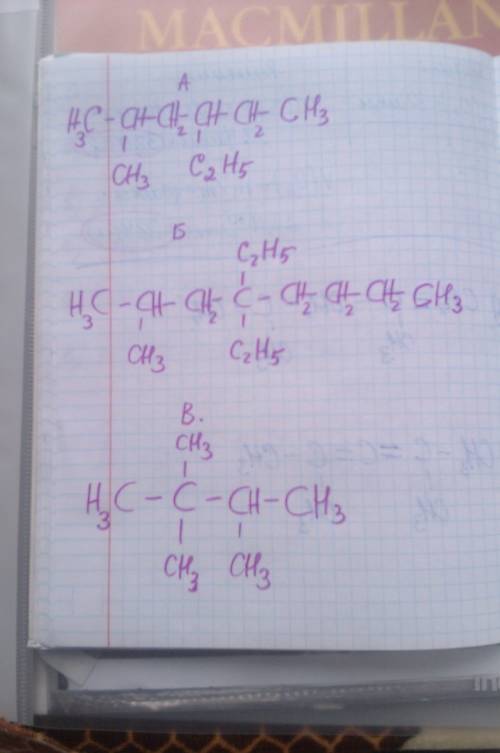 MACMILLAN
А
H₃C - CH - CH₂ - CH - CH₂ - CH₃
CH₃ C₂H₅
Б
C₂H₅
H₃C - CH - CH₂ - C - CH₂ - CH₂ - CH₂ - CH₃
CH₃ C₂H₅
В.
CH₃
H₃C - C - CH - CH₃
CH₃ CH₃